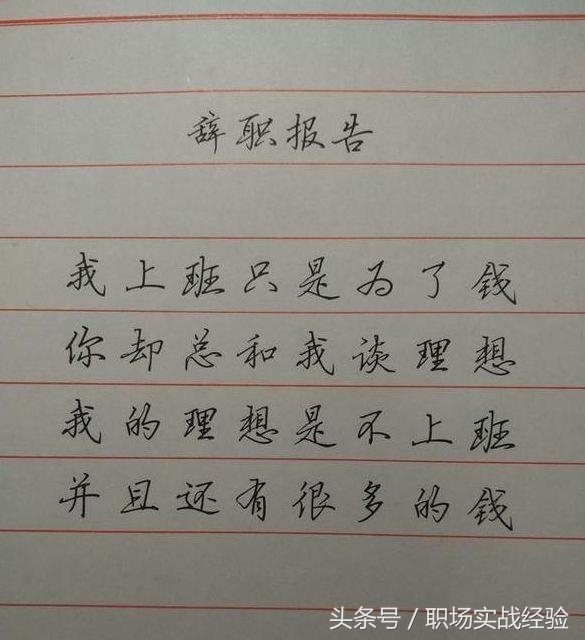 辞职报告
我上班只是为了钱
你却总和我谈理想
我的理想是不上班
并且还有很多的钱
头条号／职场实战经验